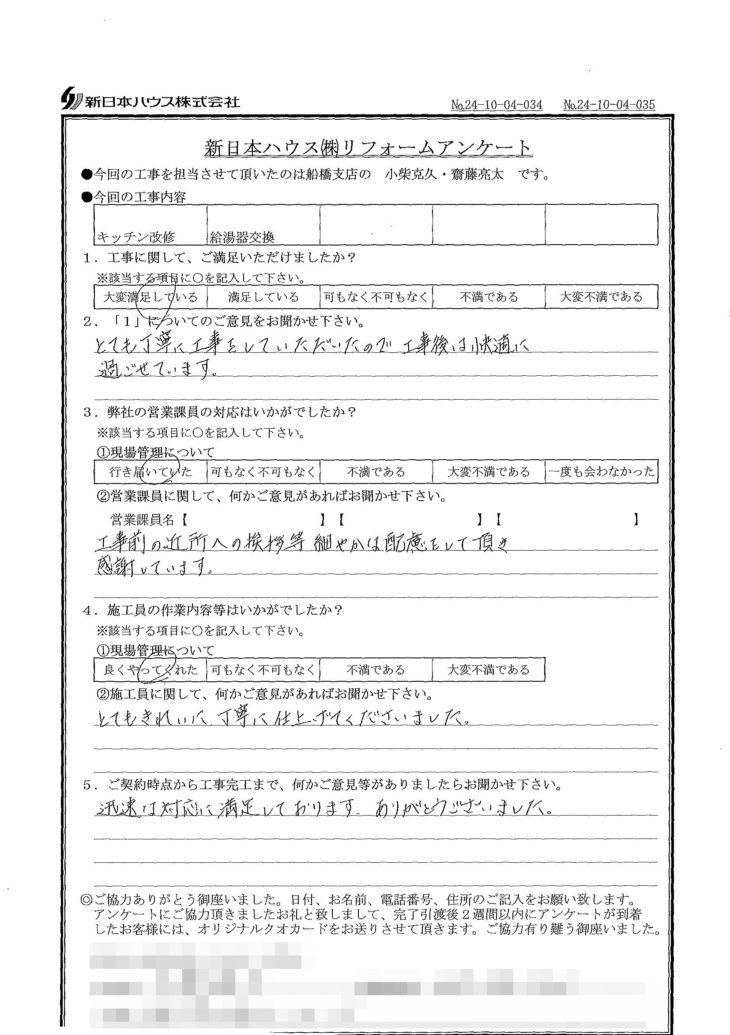 新日本ハウス株式会社
№24-10-04-034 №24-10-04-035
新日本ハウス㈱リフォームアンケート
●今回の工事を担当させて頂いたのは船橋支店の 小柴克久・齋藤亮太 です。
●今回の工事内容
キッチン改修 給湯器交換
1．工事に関して、ご満足いただけましたか？
※該当する項目に○を記入して下さい。
大変満足している 満足している 可もなく不可もなく 不満である 大変不満である
2．「1」についてのご意見をお聞かせ下さい。
とても丁寧に工事をしていただいたので 工事後は快適に
過ごせています。
3．弊社の営業課員の対応はいかがでしたか？
※該当する項目に○を記入して下さい。
①現場管理について
行き届いていた 可もなく不可もなく 不満である 大変不満である 一度も会わなかった
②営業課員に関して、何かご意見があればお聞かせ下さい。
営業課員名【 】【 】【 】
工事前の近所への挨拶等 細やかな配慮をして頂き
感謝しています。
4．施工員の作業内容等はいかがでしたか？
※該当する項目に○を記入して下さい。
①現場管理について
良くやってくれた 可もなく不可もなく 不満である 大変不満である
②施工員に関して、何かご意見があればお聞かせ下さい。
とてもきれいに 丁寧に仕上げてくださいました。
5．ご契約時点から工事完工まで、何かご意見等がありましたらお聞かせ下さい。
迅速な対応に満足しております. ありがとうございました。
◎ご協力ありがとう御座いました。日付、お名前、電話番号、住所のご記入をお願い致します。
アンケートにご協力頂きましたお礼と致しまして、完了引渡後２週間以内にアンケートが到着
したお客様には、オリジナルクオカードをお送りさせて頂きます。ご協力有り難う御座いました。